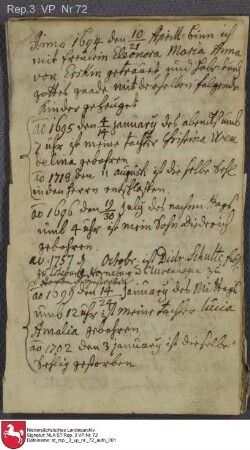 Rep.3 VP Nr.72
Anno 1694 den 10/21 Aprill binn ich
mit freulein Eleonora Maria Anna
von Erskin getrauet, und habe durch
gottes gnade mit derselben folgende
Kinder gezeuget
ao 1695 den 4/14 January des abents umb
7 uhr ist meine tochter Christina Wen
delina gebohren
ao 1718 den 11 augusti ist dieselbe sehl
in den Herren entschlaffen.
ao 1696 den 10/20 July des nachm
umb 4 uhr ist mein Sohn Diederich
gebohren
ao 1757 Octobr. ist Didr. Schulte
zu
ao 1698 den 14/24 January des Mittags
umb 12 uhr ist meine tochter Lucia
Amalia gebohren
ao 1702 den 3 January ist dieselbe
Sehlig gestorben
Niedersächsisches Landesarchiv
Signatur: NLA ST Rep. 3 VP Nr. 72
Dateiname: st_rep_3_vp_nr_72_aufn_001